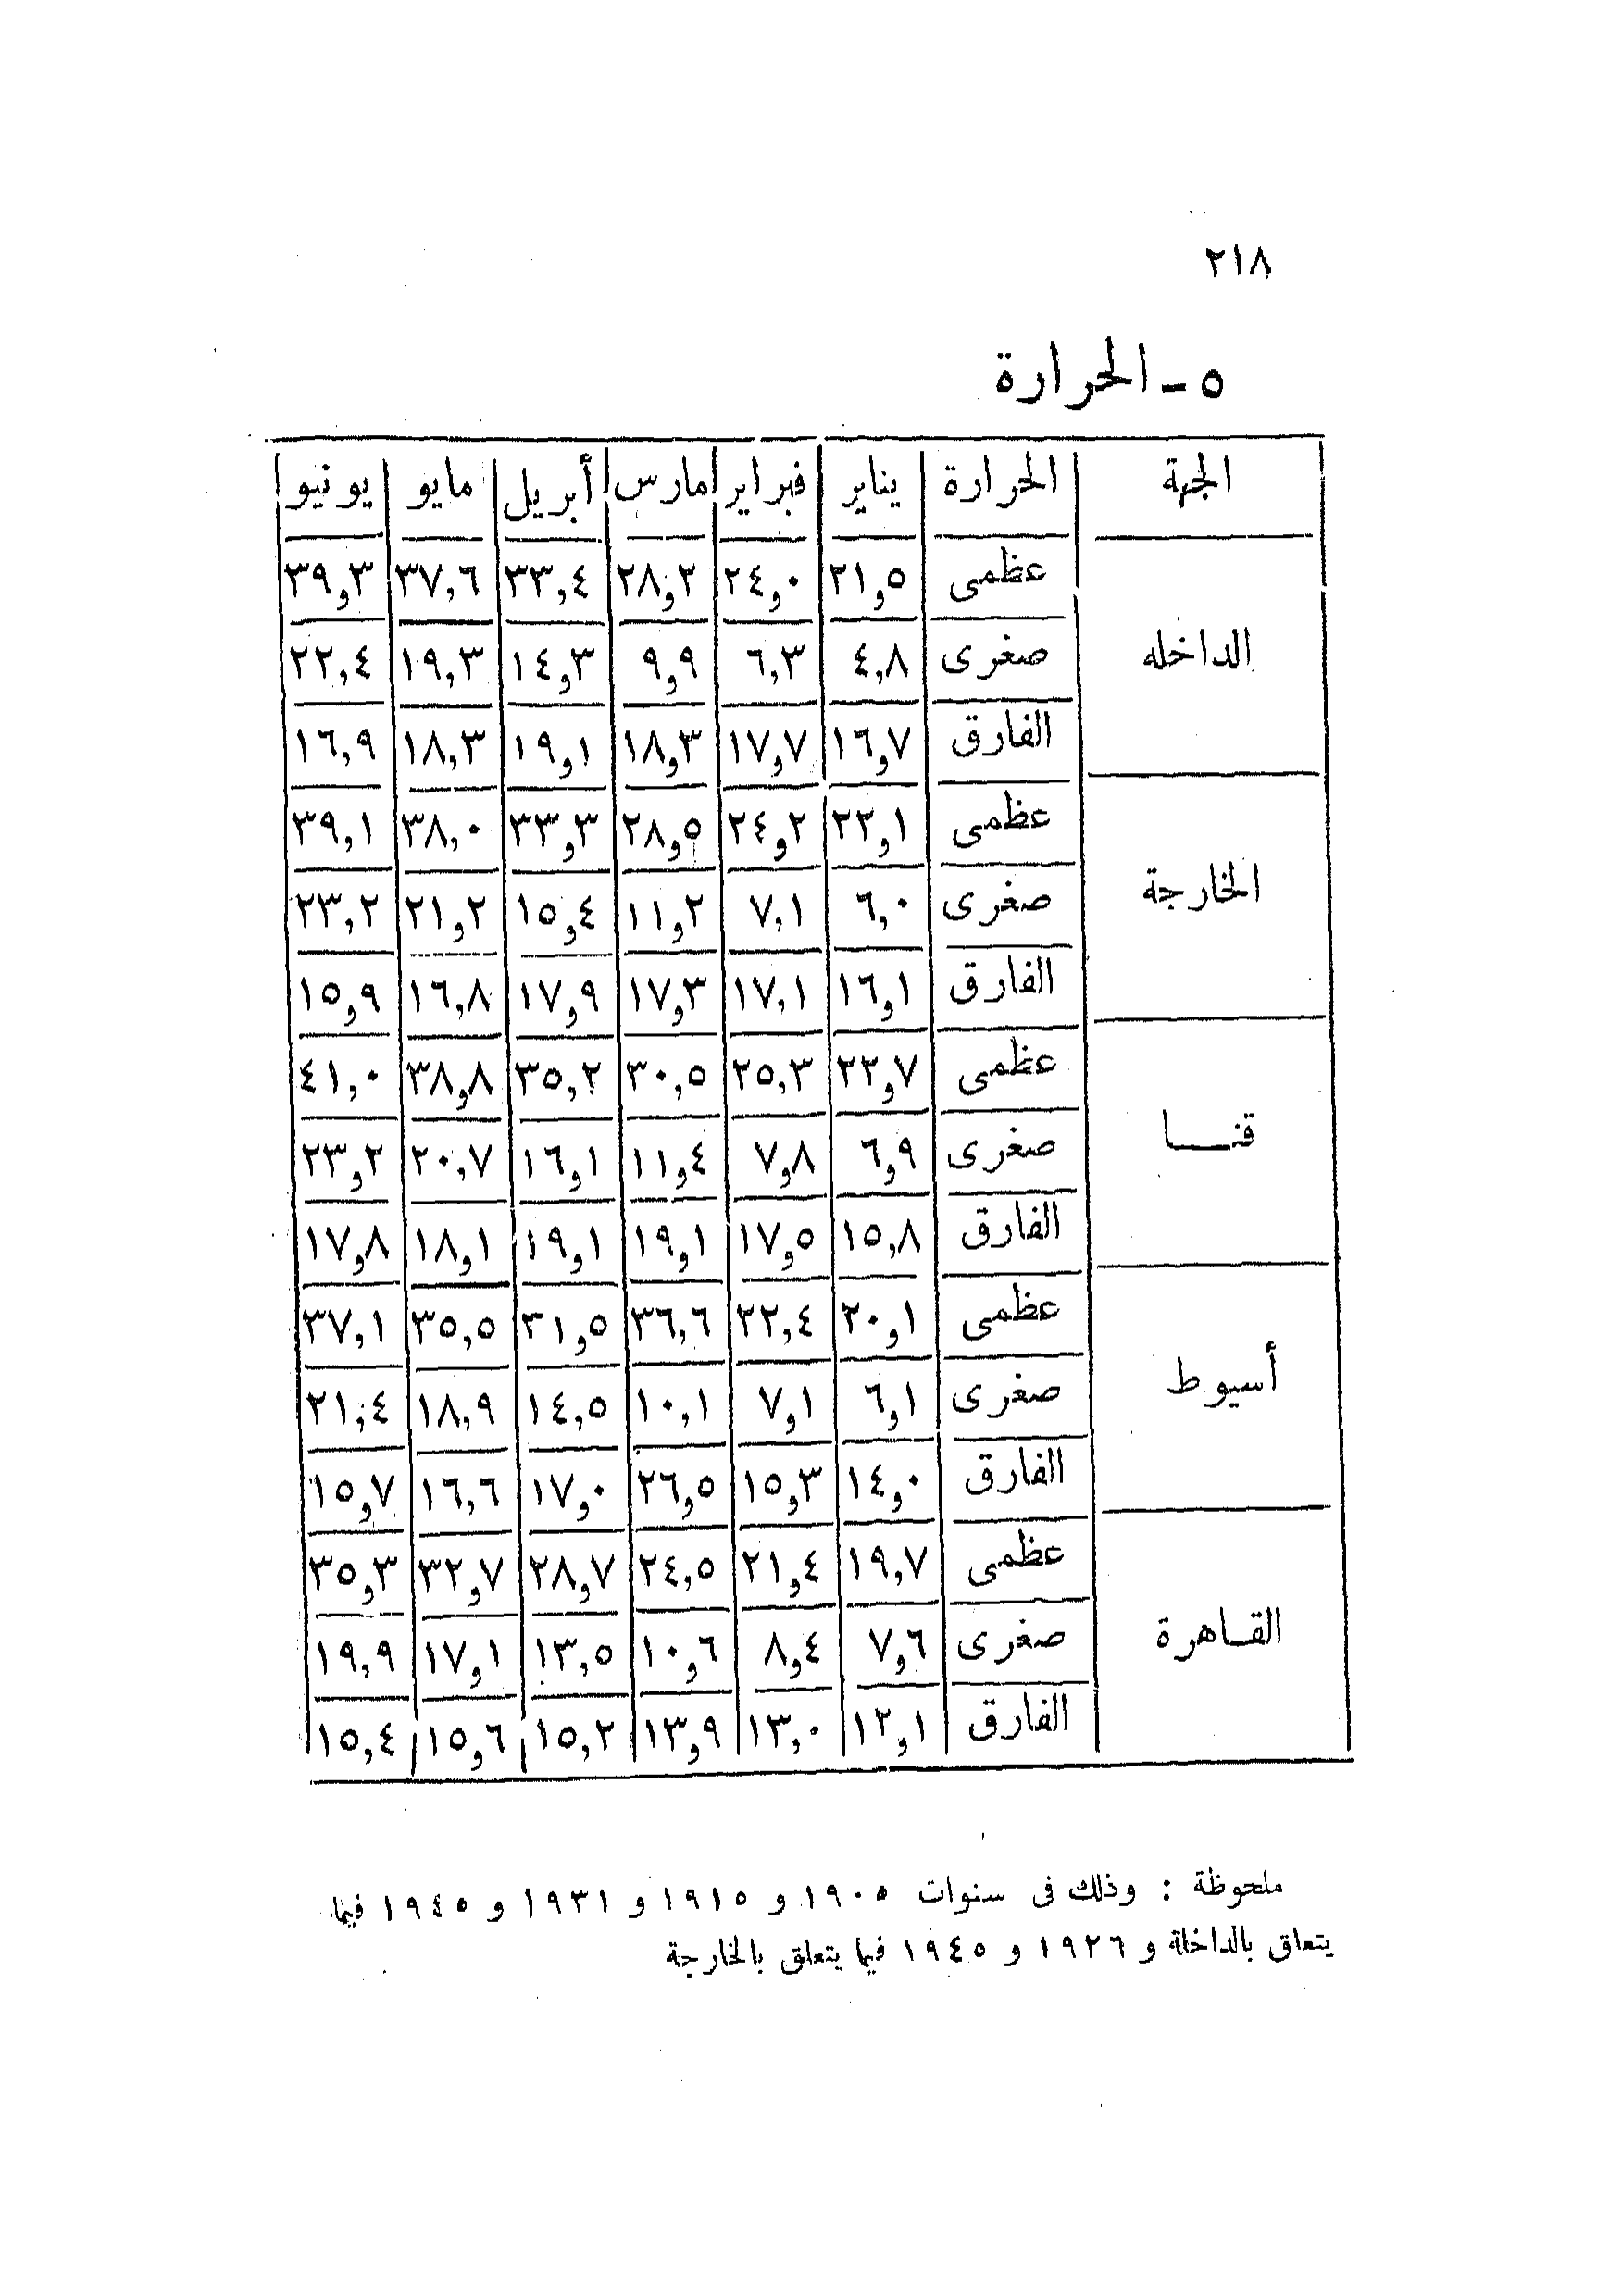 ٢١٨
٥ - الحرارة
الجهة الحرارة يناير فبراير مارس أبريل مايو يونيو
الداخله
عظمى ٢١,٥ ٢٤,٠ ٢٨,٢ ٣٣,٤ ٣٧,٦ ٣٩,٣
صغرى ٤,٨ ٦,٣ ٩,٩ ١٤,٣ ١٩,٣ ٢٢,٤
الفارق ١٦,٧ ١٧,٧ ١٨,٣ ١٩,١ ١٨,٣ ١٦,٩
الخارجة
عظمى ٢٢,١ ٢٤,٢ ٢٨,٥ ٣٣,٣ ٣٨,٠ ٣٩,١
صغرى ٦,٠ ٧,١ ١١,٢ ١٥,٤ ٢١,٢ ٢٣,٢
الفارق ١٦,١ ١٧,١ ١٧,٣ ١٧,٩ ١٦,٨ ١٥,٩
قنــا
عظمى ٢٢,٧ ٢٥,٣ ٣٠,٥ ٣٥,٢ ٣٨,٨ ٤١,٠
صغرى ٦,٩ ٧,٨ ١١,٤ ١٦,١ ٢٠,٧ ٢٣,٢
الفارق ١٥,٨ ١٧,٥ ١٩,١ ١٩,١ ١٨,١ ١٧,٨
أسيوط
عظمى ٢٠,١ ٢٢,٤ ٣٦,٦ ٣١,٥ ٣٥,٥ ٣٧,١
صغرى ٦,١ ٧,١ ١٠,١ ١٤,٥ ١٨,٩ ٢١,٤
الفارق ١٤,٠ ١٥,٣ ٢٦,٥ ١٧,٠ ١٦,٦ ١٥,٧
القــاهرة
عظمى ١٩,٧ ٢١,٤ ٢٤,٥ ٢٨,٧ ٣٢,٧ ٣٥,٣
صغرى ٧,٦ ٨,٤ ١٠,٦ ١٣,٥ ١٧,١ ١٩,٩
الفارق ١٢,١ ١٣,٠ ١٣,٩ ١٥,٢ ١٥,٦ ١٥,٤
ملحوظة : وذلك فى سنوات ١٩٠٥ و ١٩١٥ و ١٩٣١ و ١٩٤٥ فيما
يتعلق بالداخلة و ١٩٢٦ و ١٩٤٥ فيما يتعلق بالخارجة